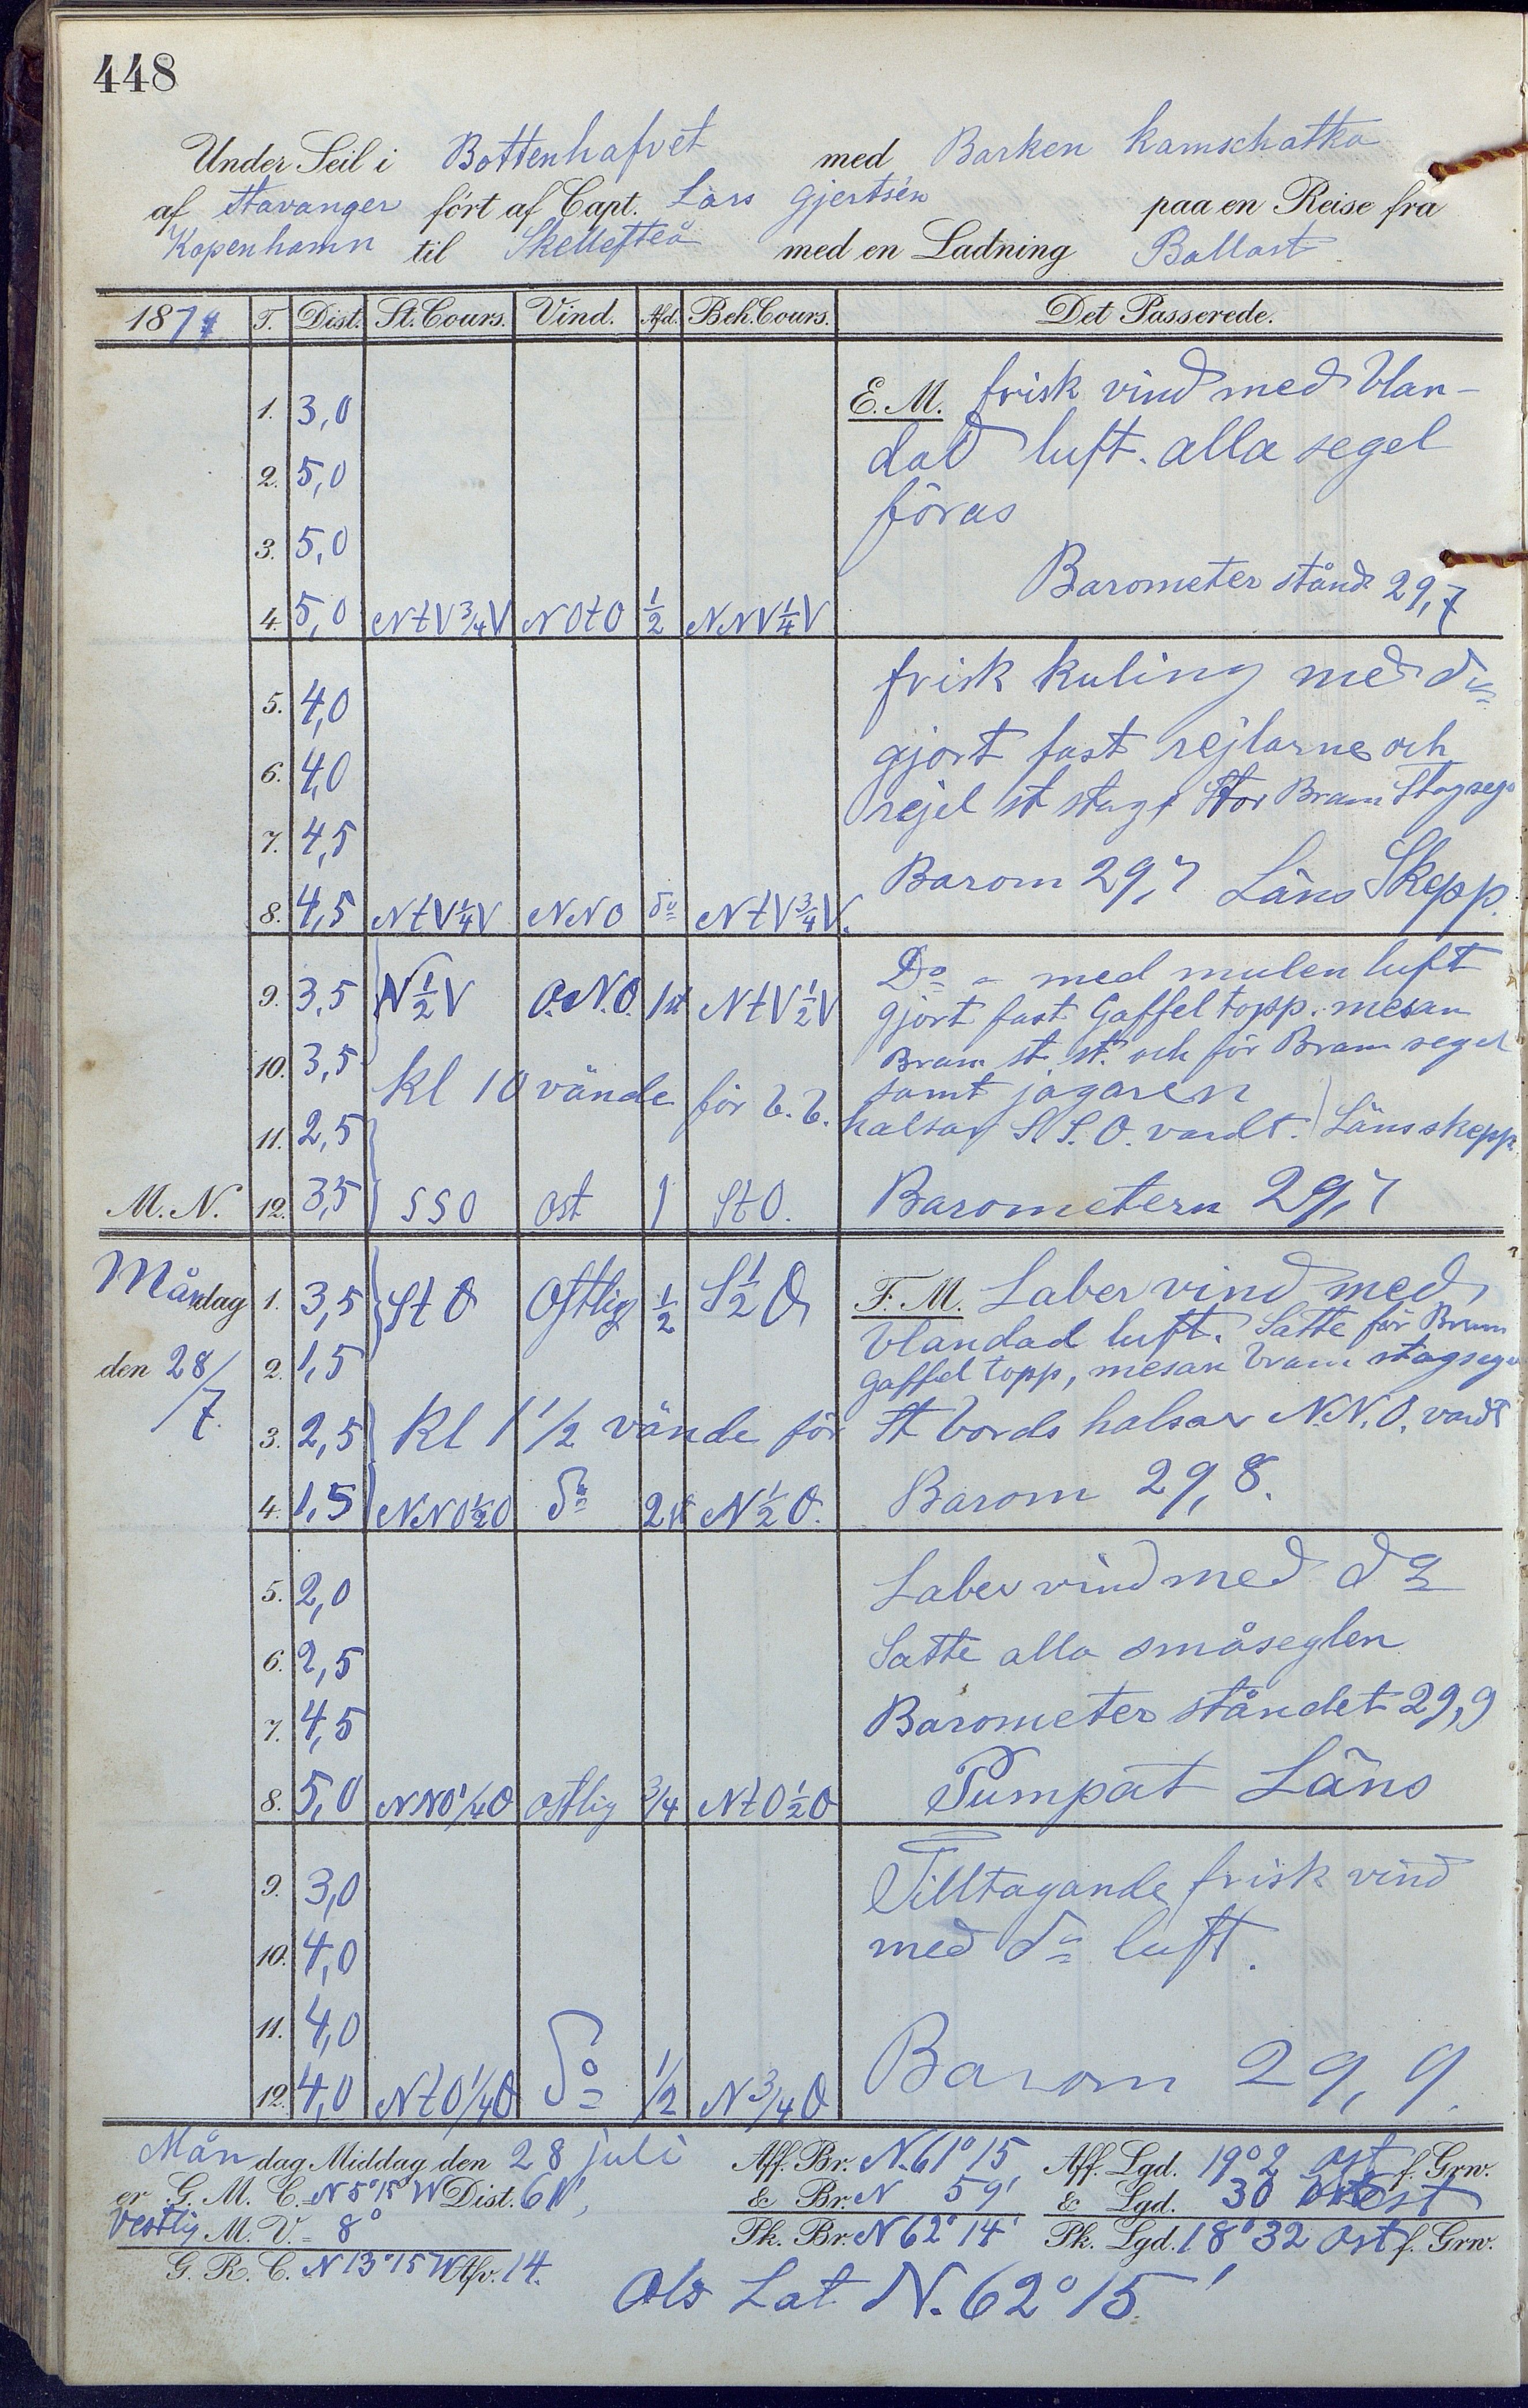 448
Under Seil i Bottenhafvet med Barken Kamschatka
af Stavanger fört af Capt. Lars Gjertsén paa en Reise fra
Kopenhamn til Skellefteå med en Ladning Ballast
18 T. Dist. St. Cours. Vind. Afd. Beh. Cours. Det Passerede.
1. 3,0 E. M. frisk vind med blan-
2. 5,0 dad luft. alla segel
3. 5,0 föras
Barometer stånd 29,7
4. 5,0 NtV 3/4 V NOtO 1/2 NNV 1/4 V
5. 4,0 frisk kuling med do
6. 4,0 gjort fast rejlarne och
7. 4,5 rejel st stags Stor Bram Stagseg
Barom 29,7 Läns Skepp.
8. 4,5 NtV 1/4 V NNO do NtV 3/4 V.
9. 3,5 N 1/2 V O.N.O. 1 st NtV 1/2 V Do med mulen luft
gjort fast Gaffel topp. mesan
10. 3,5 Bram st. st. och för Bram segel
samt jagaren
11. 2,5 Kl 10 vände för b. b. halsar S S. O. vardt. Läns skepp.
M. N. 12. 3,5 SSO Ost 1 StO. Barometern 29,7
Måndag 1. 3,5 StO Ostlig 1/2 S 1/2 O F. M. Laber vind med
blandad luft. Satte för Bram
den 28/7. 2. 1,5 Gaffel topp, mesan bram stagsege
3. 2,5 Kl 1 1/2 vände för St bords halsar N.N.O. vardt
4. 1,5 NNO 1/2 O do 2 st N 1/2 O. Barom 29,8.
5. 2,0 Laber vind med do
6. 2,5 Satte alla småseglen
7. 4,5 Barometer ståndet 29,9
8. 5,0 NNO 1/4 O ostlig 3/4 NtO 1/2 O Pumpat Läns
9. 3,0 Tilltagande frisk vind
10. 4,0 med do luft.
11. 4,0
12. 4,0 NtO 1/4 O do 1/2 N 3/4 O Barom 29,9.
Måndag Middag den 28 juli Aff. Br. N. 61° 15 Aff. Lgd. 19° 2 ost f. Grw.
er G. M. C. N 5° 15' W Dist. 61', & Br. N 59' & Lgd. 30 West
Vestlig M. V. = 8° Pk. Br. N 62° 14' Pk. Lgd. 18° 32 Ost f. Grw.
G. R. C. N 13° 15' W Afv. 14.
Obs Lat N. 62° 15'